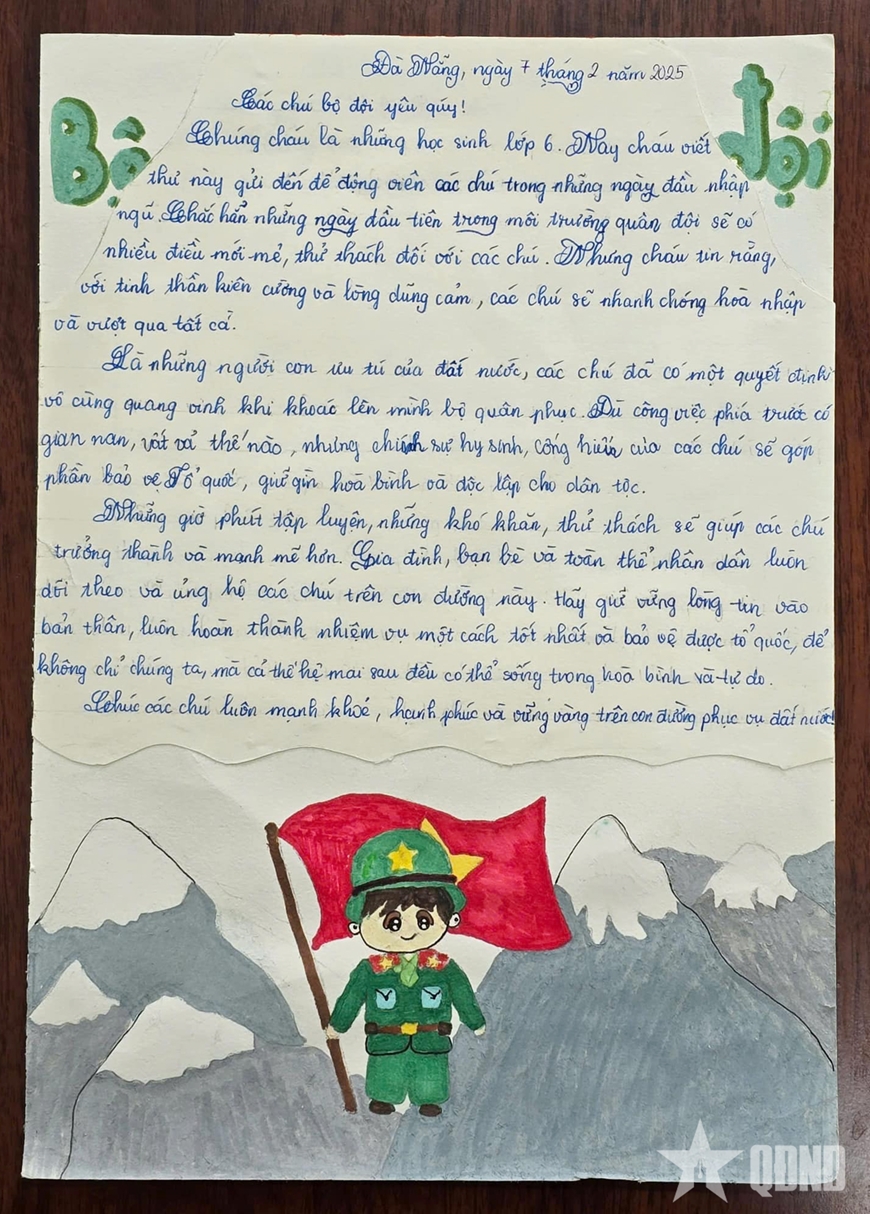 Đà Nẵng, ngày 7 tháng 2 năm 2025
Bộ đội
Các chú bộ đội yêu qúy!
Chúng cháu là những học sinh lớp 6. Nay cháu viết
thư này gửi đến để động viên các chú trong những ngày đầu nhập
ngũ. Chắc hẳn những ngày đầu tiên trong môi trường quân đội sẽ có
nhiều điều mới mẻ, thử thách đối với các chú. Nhưng cháu tin rằng,
với tinh thần kiên cường và lòng dũng cảm, các chú sẽ nhanh chóng hoà nhập
và vượt qua tất cả.
Là những người con ưu tú của đất nước, các chú đã có một quyết định
vô cùng quang vinh khi khoác lên mình bộ quân phục. Dù công việc phía trước có
gian nan, vất vả thế nào, nhưng chính sự hy sinh, cống hiến của các chú sẽ góp
phần bảo vệ Tổ quốc, giữ gìn hoà bình và độc lập cho dân tộc.
Những giờ phút tập luyện, những khó khăn, thử thách sẽ giúp các chú
trưởng thành và mạnh mẽ hơn. Gia đình, bạn bè và toàn thể nhân dân luôn
dõi theo và ủng hộ các chú trên con đường này. Hãy giữ vững lòng tin vào
bản thân, luôn hoàn thành nhiệm vụ một cách tốt nhất và bảo vệ được tổ quốc, để
không chỉ chúng ta, mà cả thế hệ mai sau đều có thể sống trong hoà bình và tự do.
Chúc các chú luôn mạnh khoẻ, hạnh phúc và vững vàng trên con đường phục vụ đất nước!
QĐND